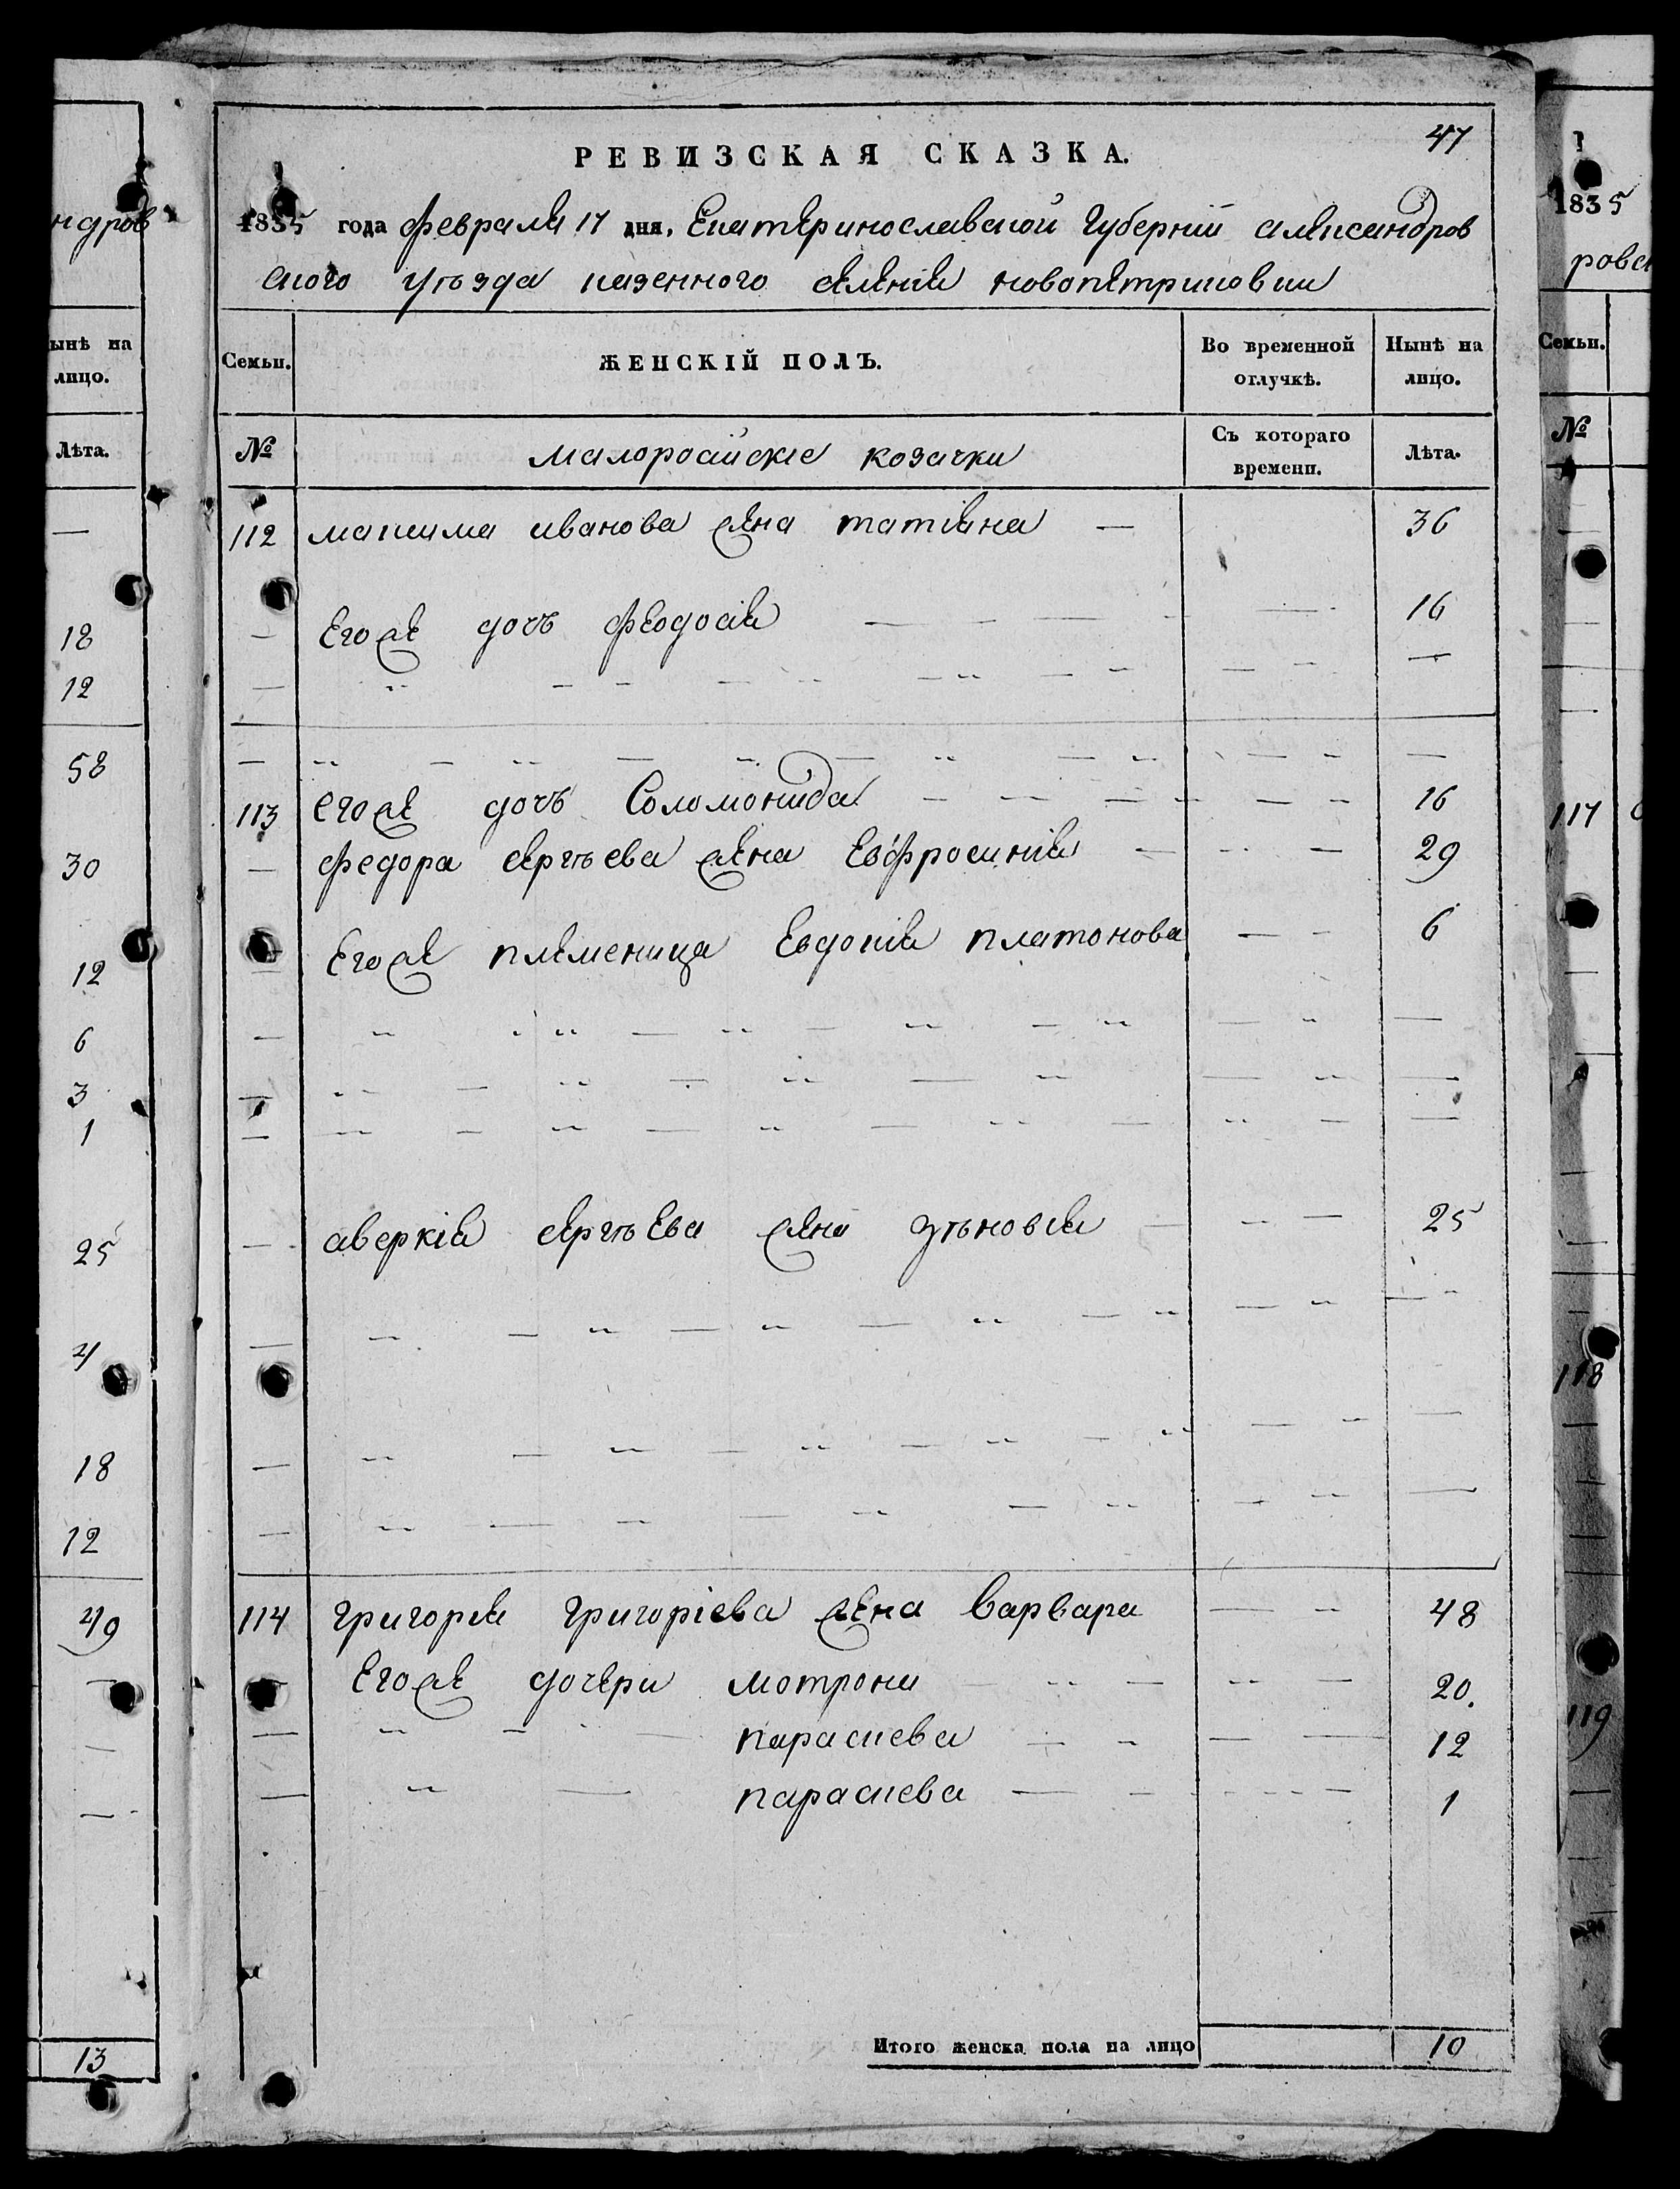 47
РЕВИЗСКАЯ СКАЗКА.
1835 года февраля 17 дня, Екатеринославской Губерніи александров
ского уѣзда казенного селенія новопетриковки
Семьи.
ЖЕНСКІЙ ПОЛЪ.
Во временной отлучкѣ.
Нынѣ на лицо.
№
малоросийскіе козачки
Съ котораго времени.
Лѣта.
112 максима иванова жена татіяна — 36
— Его же дочь феодосія — — — 16
113 его же дочь Соломонида — 16
— федора сергѣева жена Евфросинія — — 29
Его же племеница Евдокія платонова — 6
— аверкія сергѣева жена зѣновія — 25
114 григорія григоріева жена варвара — 48
Его же дочери мотрона — 20.
— параскева — 12
— параскева — 1
Итого женска пола на лицо 10
ндров
ынѣ на
лицо.
Лѣта.
18
12
58
30
12
6
3
1
25
4
18
12
49
13
1835
ровск
Семьи.
№
117
118
119